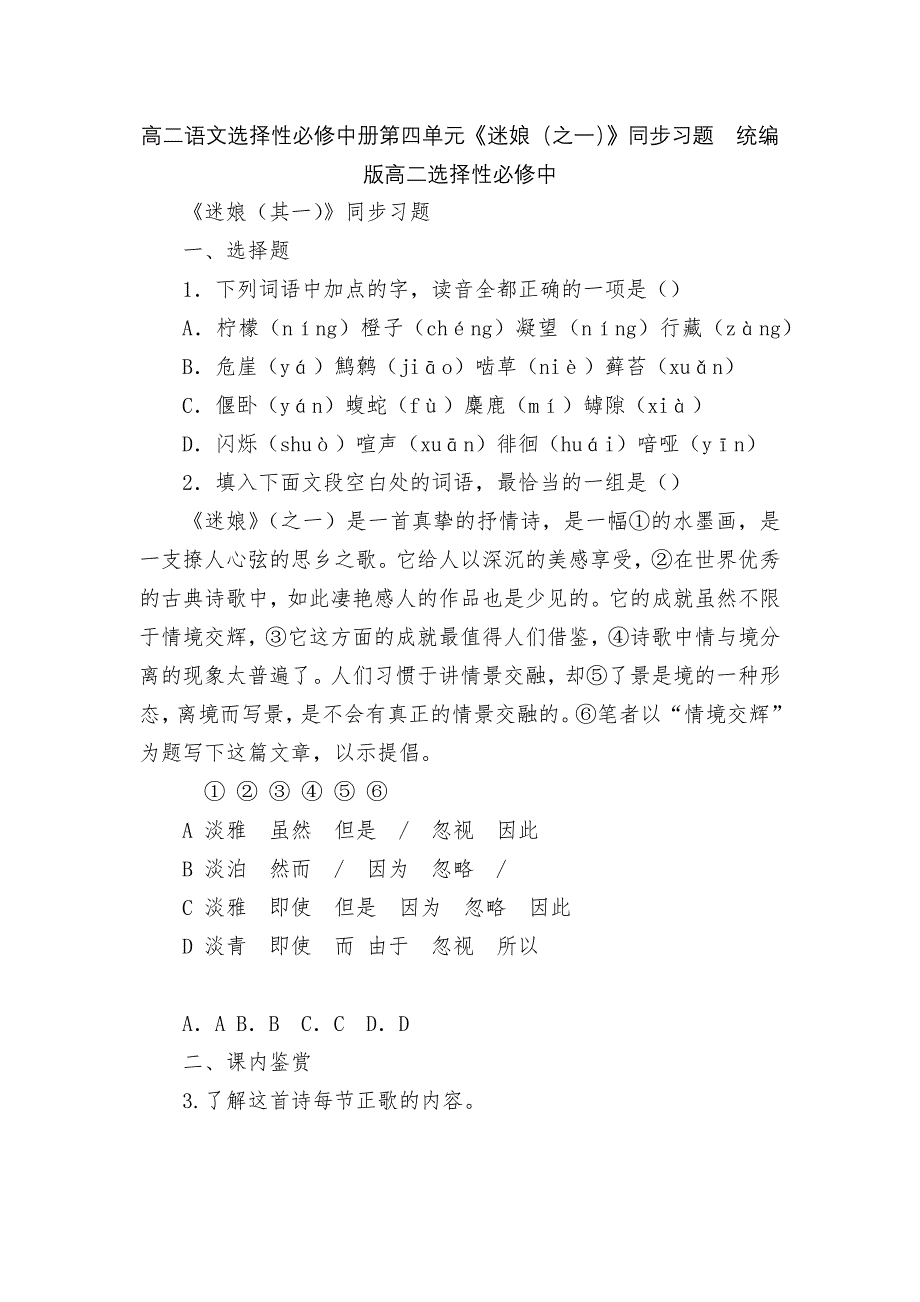 高二语文选择性必修中册第四单元《迷娘（之一）》同步习题　统编
版高二选择性必修中
《迷娘（其一）》同步习题
一、选择题
1．下列词语中加点的字，读音全都正确的一项是（）
A．柠檬（níng）橙子（chéng）凝望（níng）行藏（zàng）
B．危崖（yá）鹪鹩（jiāo）啮草（niè）藓苔（xuǎn）
C．偃卧（yán）蝮蛇（fù）麋鹿（mí）罅隙（xià）
D．闪烁（shuò）喧声（xuān）徘徊（huái）喑哑（yīn）
2．填入下面文段空白处的词语，最恰当的一组是（）
《迷娘》（之一）是一首真挚的抒情诗，是一幅①的水墨画，是
一支撩人心弦的思乡之歌。它给人以深沉的美感享受，②在世界优秀
的古典诗歌中，如此凄艳感人的作品也是少见的。它的成就虽然不限
于情境交辉，③它这方面的成就最值得人们借鉴，④诗歌中情与境分
离的现象太普遍了。人们习惯于讲情景交融，却⑤了景是境的一种形
态，离境而写景，是不会有真正的情景交融的。⑥笔者以“情境交辉”
为题写下这篇文章，以示提倡。
① ② ③ ④ ⑤ ⑥
A 淡雅　虽然　但是　/　忽视　因此
B 淡泊　然而　/　因为　忽略　/
C 淡雅　即使　但是　因为　忽略　因此
D 淡青　即使　而 由于　忽视　所以
A．A B．B　C．C　D．D
二、课内鉴赏
3.了解这首诗每节正歌的内容。